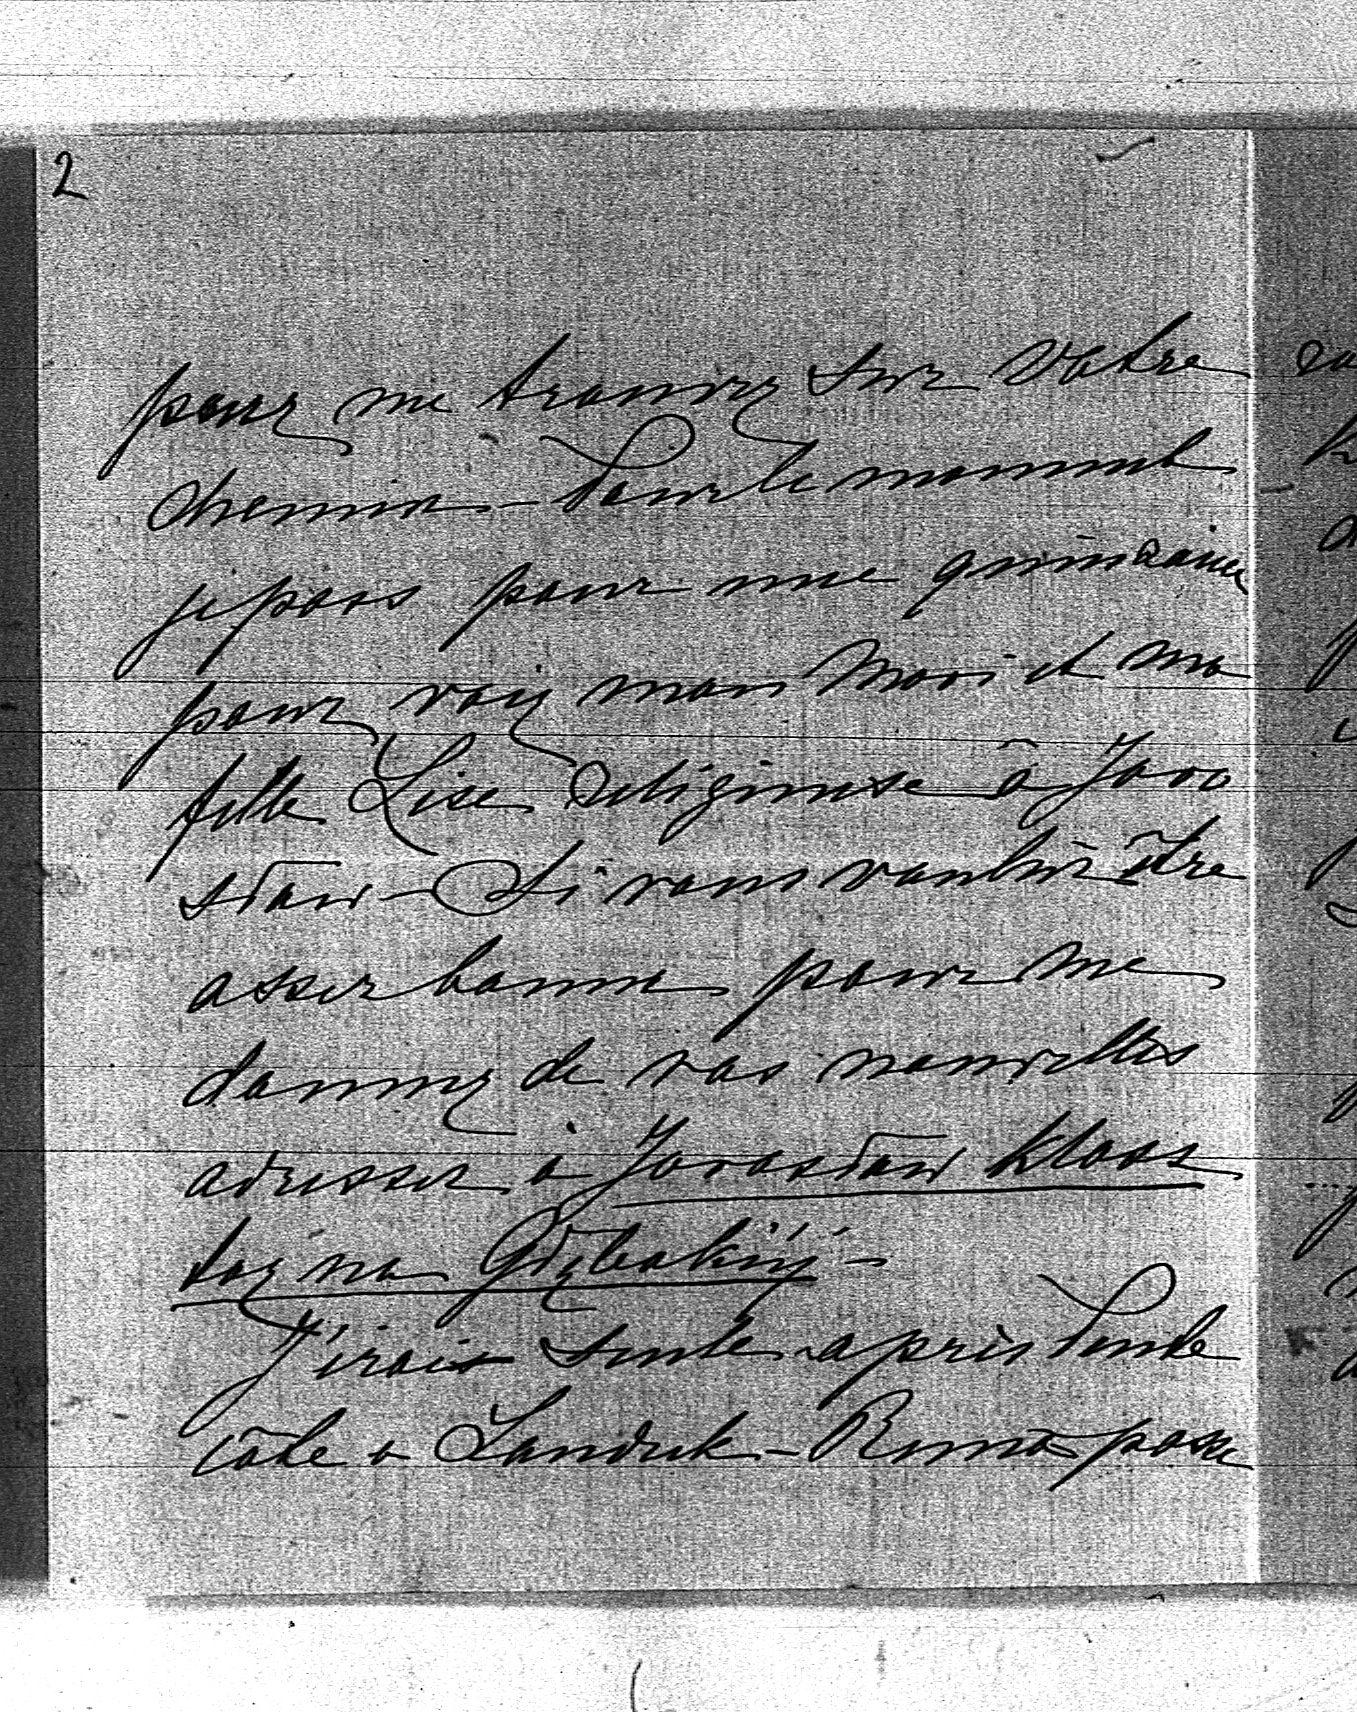 2
pour me trouver sur votre
chemin – Pour le moment
je pars pour une quinzaine
pour voir mon Mari et ma
fille Lise religieuse à Jaro
sław – Si vous vouliez être
assez bonne pour me
donner de vos nouvelles
adressez à Jarosław klasz
tor na
J'irais seule après toute
côte a – Roma pour